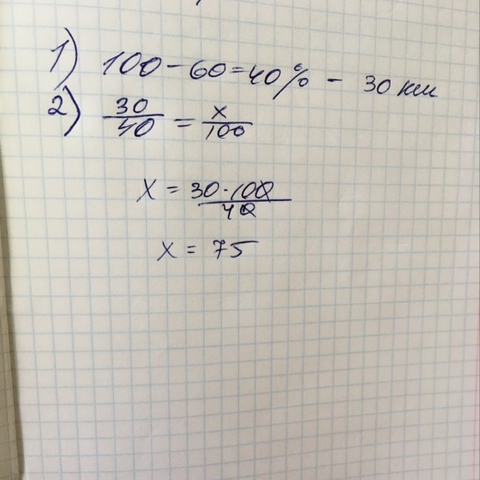 1) 100 - 60 = 40% - 30 км
2) 30/40 = x/100
x = 30·100/40
x = 75